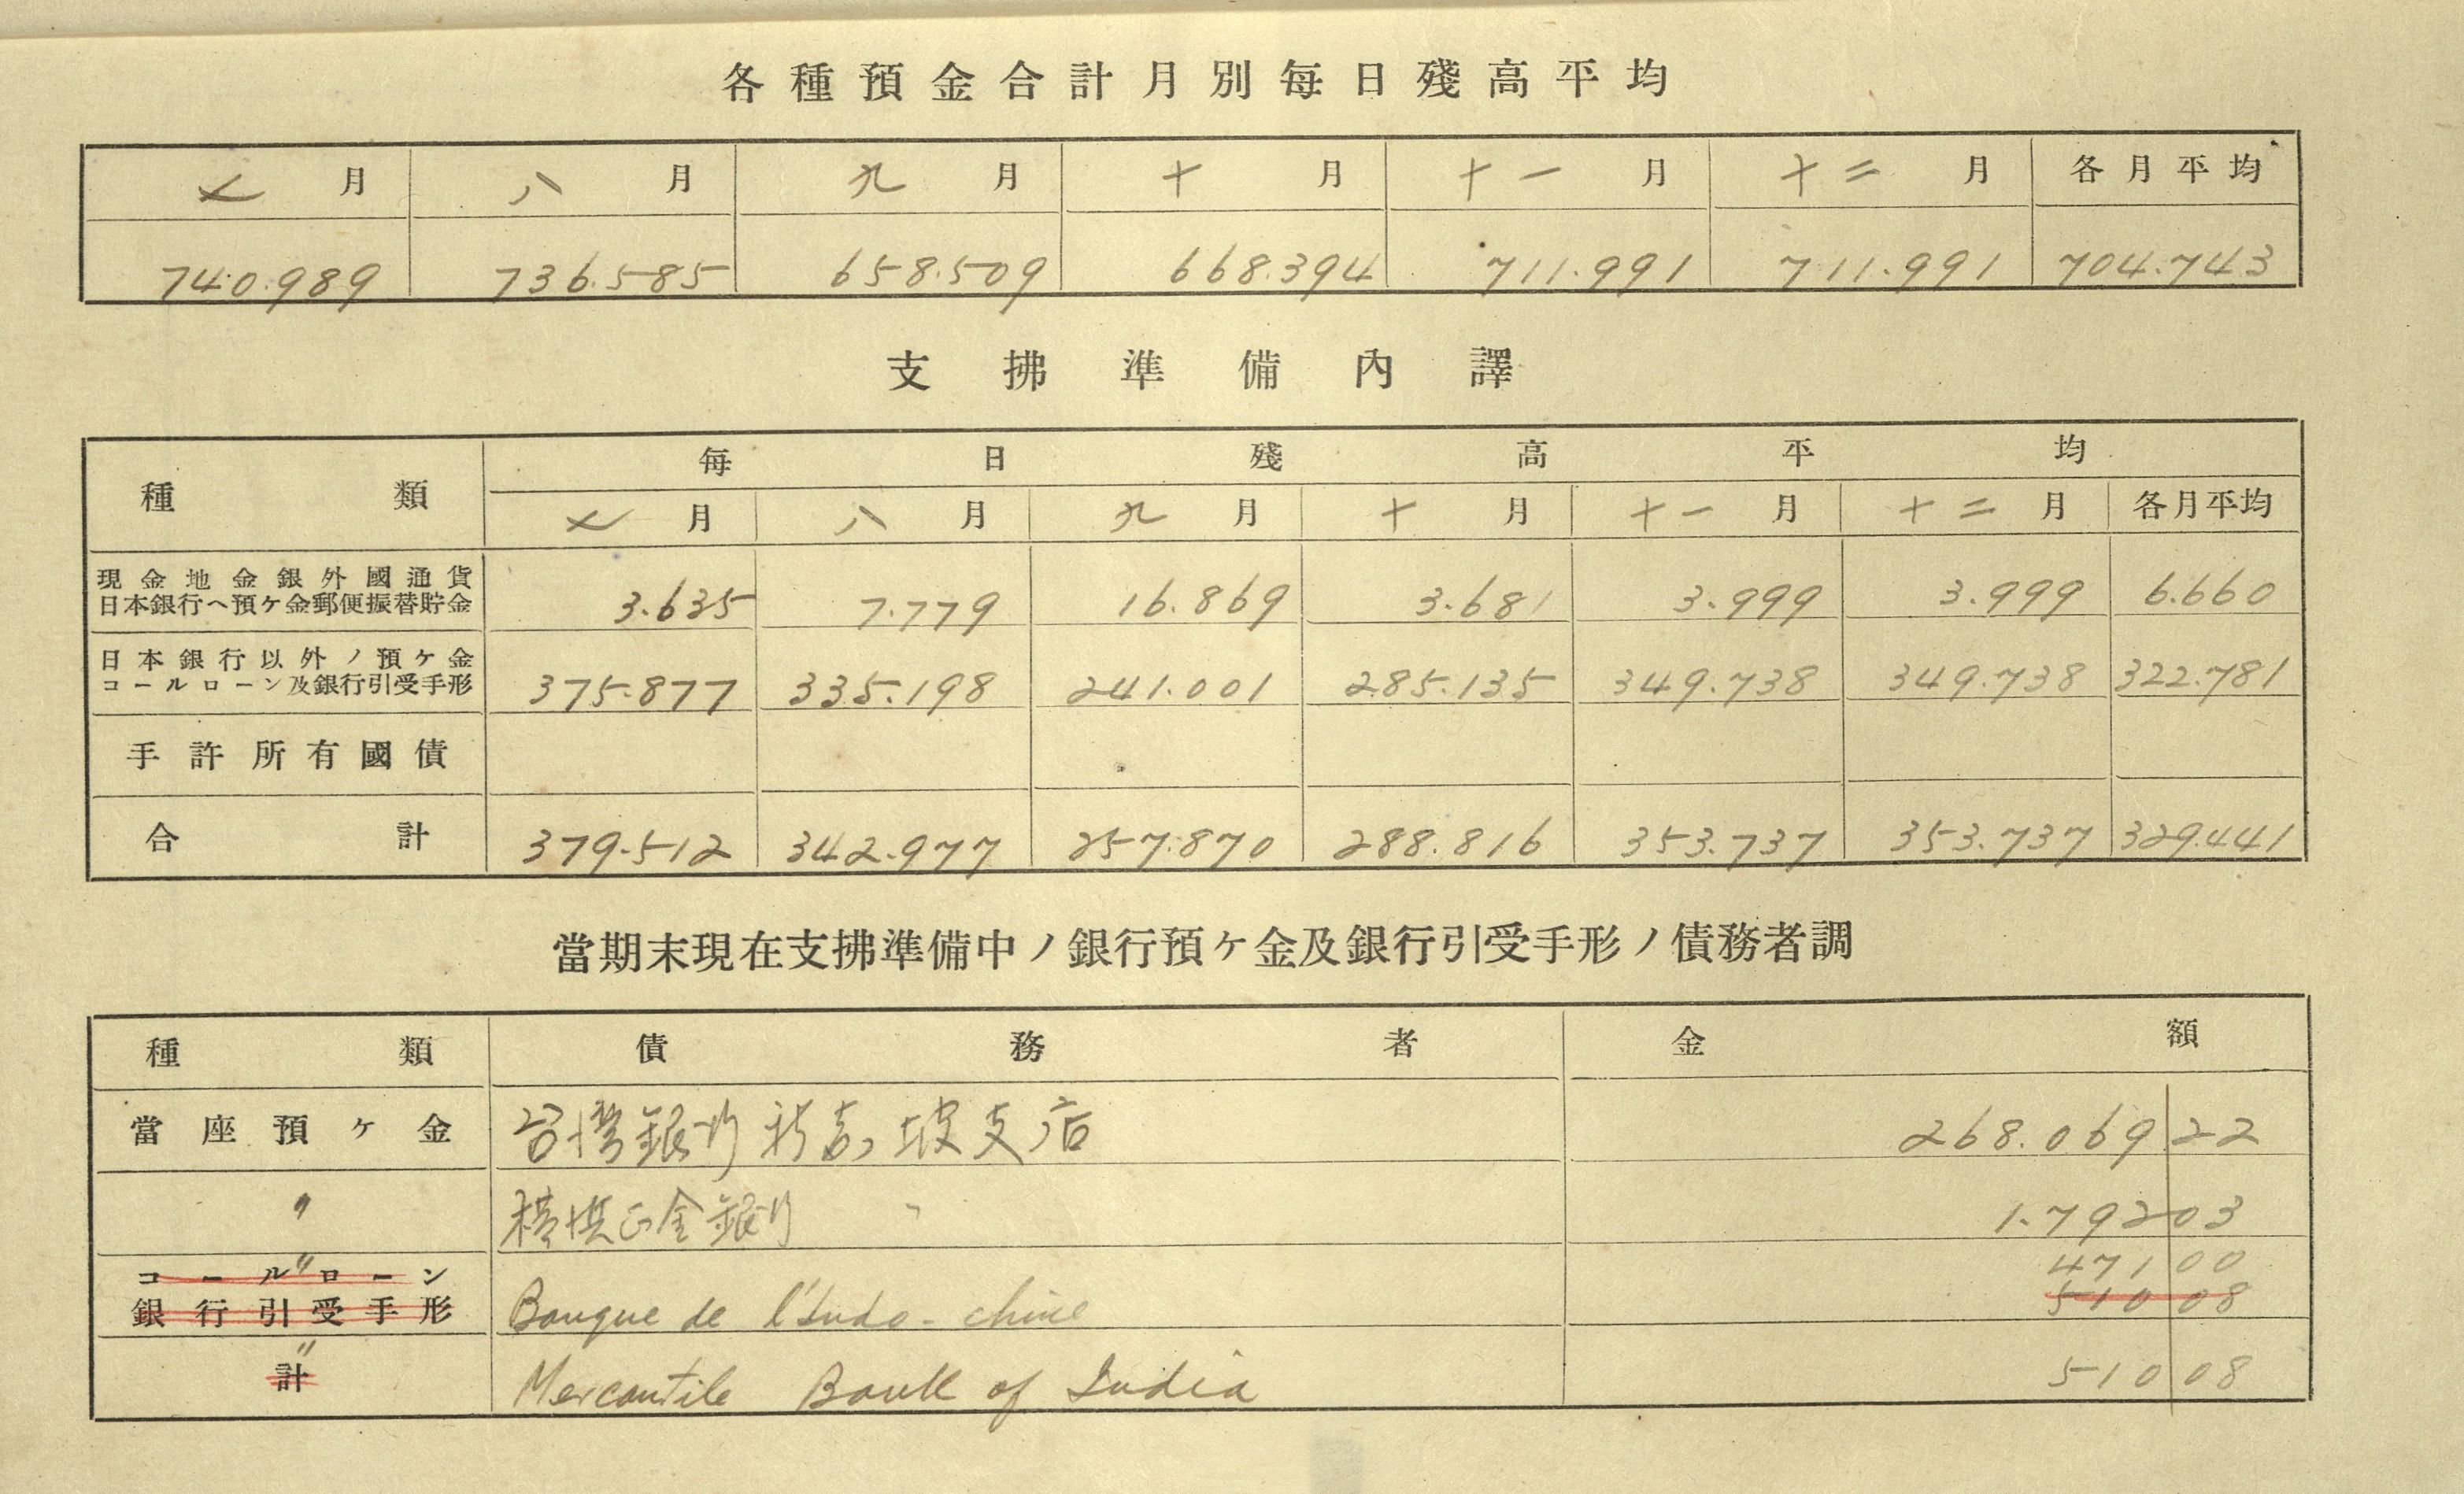 各種預金合計月別每日殘高平均
七月 八月 九月 十月 十一月 十二月 各月平均
740.989 736.585 658.509 668.394 711.991 711.991 704.743
支拂準備內譯
種類 每日殘高平均
七月 八月 九月 十月 十一月 十二月 各月平均
現金地金銀外國通貨
日本銀行ヘ預ケ金郵便振替貯金 3.635 7.779 16.869 3.681 3.999 3.999 6.660
日本銀行以外ノ預ケ金
コールローン及銀行引受手形 375.877 335.198 241.001 285.135 349.738 349.738 322.781
手許所有國債
合計 379.512 342.977 257.870 288.816 353.737 353.737 329.441
當期末現在支拂準備中ノ銀行預ケ金及銀行引受手形ノ債務者調
種類 債務者 金額
當座預ケ金 台灣銀行新嘉坡支店 268.069 22
〃 橫濱正金銀行 〃 1.792 03
コールローン 〃 471 00
銀行引受手形 Banque de l'Indo-chine 510 08
〃
計 Mercantile Bank of India 510 08